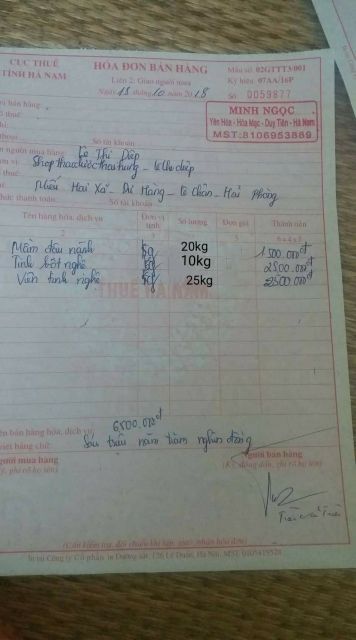 CỤC THUẾ
TỈNH HÀ NAM
HÓA ĐƠN BÁN HÀNG
Liên 2: Giao người mua
Ngày 15 tháng 10 năm 2018
Mẫu số: 02GTTT3/001
Ký hiệu: 07AA/16P
Số 0059877
bán hàng:
thuế:
chỉ:
thoại: Số tài khoản
MINH NGỌC
Yên Hòa - Hòa Mạc - Duy Tiên - Hà Nam
MST: 8106953869
người mua hàng: Lê Thị Diệp
vị: Shop - lethidiep
thuế:
chỉ: Hai Xã - Dư Hàng - Lê Chân - Hải Phòng
thức thanh toán: Số tài khoản
Tên hàng hóa, dịch vụ Đơn vị tính Số lượng Đơn giá Thành tiền
2 6=4x5
Mầm đậu nành kg 20kg 1500.000đ
Tinh bột nghệ kg 10kg 2500.000đ
Viên tinh nghệ kg 25kg 2500.000đ
THUẾ HÀ NAM
tiền bán hàng hóa, dịch vụ: 6500.000đ
viết bằng chữ: Sáu triệu năm trăm nghìn đồng
người mua hàng
(Ký, ghi rõ họ tên)
Người bán hàng
(Ký, đóng dấu, ghi rõ họ tên)
(Cần kiểm tra, đối chiếu khi lập, giao, nhận hóa đơn)
In tại Công ty Cổ phần in Đường sắt, 126 Lê Duẩn, Hà Nội, MST: